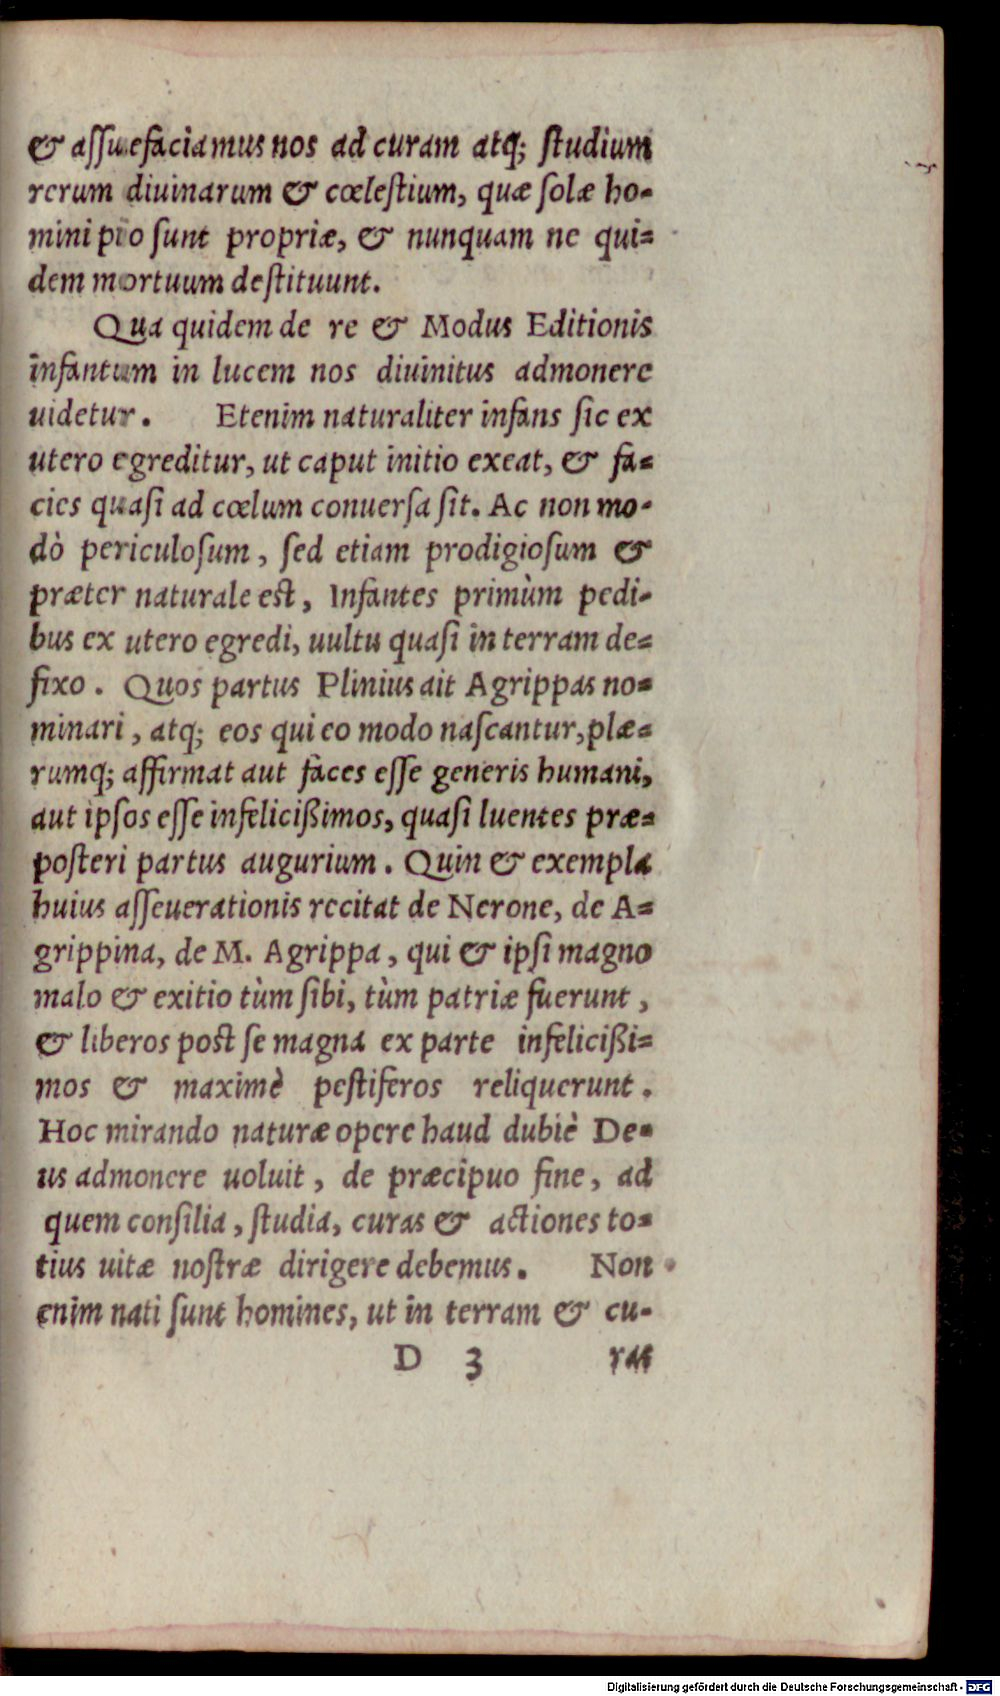 & aſſuefaciamus nos ad curam atq; ſtudium
rerum diuinarum & cœleſtium, quæ ſolæ ho-
mini pio ſunt propriæ, & nunquam ne qui-
dem mortuum deſtituunt.
Qua quidem de re & Modus Editionis
infantum in lucem nos diuinitus admonere
uidetur. Etenim naturaliter infans ſic ex
utero egreditur, ut caput initio exeat, & fa-
cies quaſi ad cœlum conuerſa ſit. Ac non mo-
dò periculoſum, ſed etiam prodigioſum &
præter naturale eſt, Infantes primùm pedi-
bus ex utero egredi, uultu quaſi in terram de-
fixo. Quos partus Plinius ait Agrippas no-
minari, atq; eos qui eo modo naſcantur, plæ-
rumq; affirmat aut faces eſſe generis humani,
aut ipſos eſſe infelicißimos, quaſi luentes præ-
poſteri partus augurium. Quin & exempla
huius aſſeuerationis recitat de Nerone, de A-
grippina, de M. Agrippa, qui & ipſi magno
malo & exitio tùm ſibi, tùm patriæ fuerunt,
& liberos poſt ſe magna ex parte infelicißi-
mos & maximè peſtiferos reliquerunt.
Hoc mirando naturæ opere haud dubiè De-
us admonere uoluit, de præcipuo fine, ad
quem conſilia, ſtudia, curas & actiones to-
tius uitæ noſtræ dirigere debemus. Non
enim nati ſunt homines, ut in terram & cu-
D 3 ras
Digitalisierung gefördert durch die Deutsche Forschungsgemeinschaft - DFG